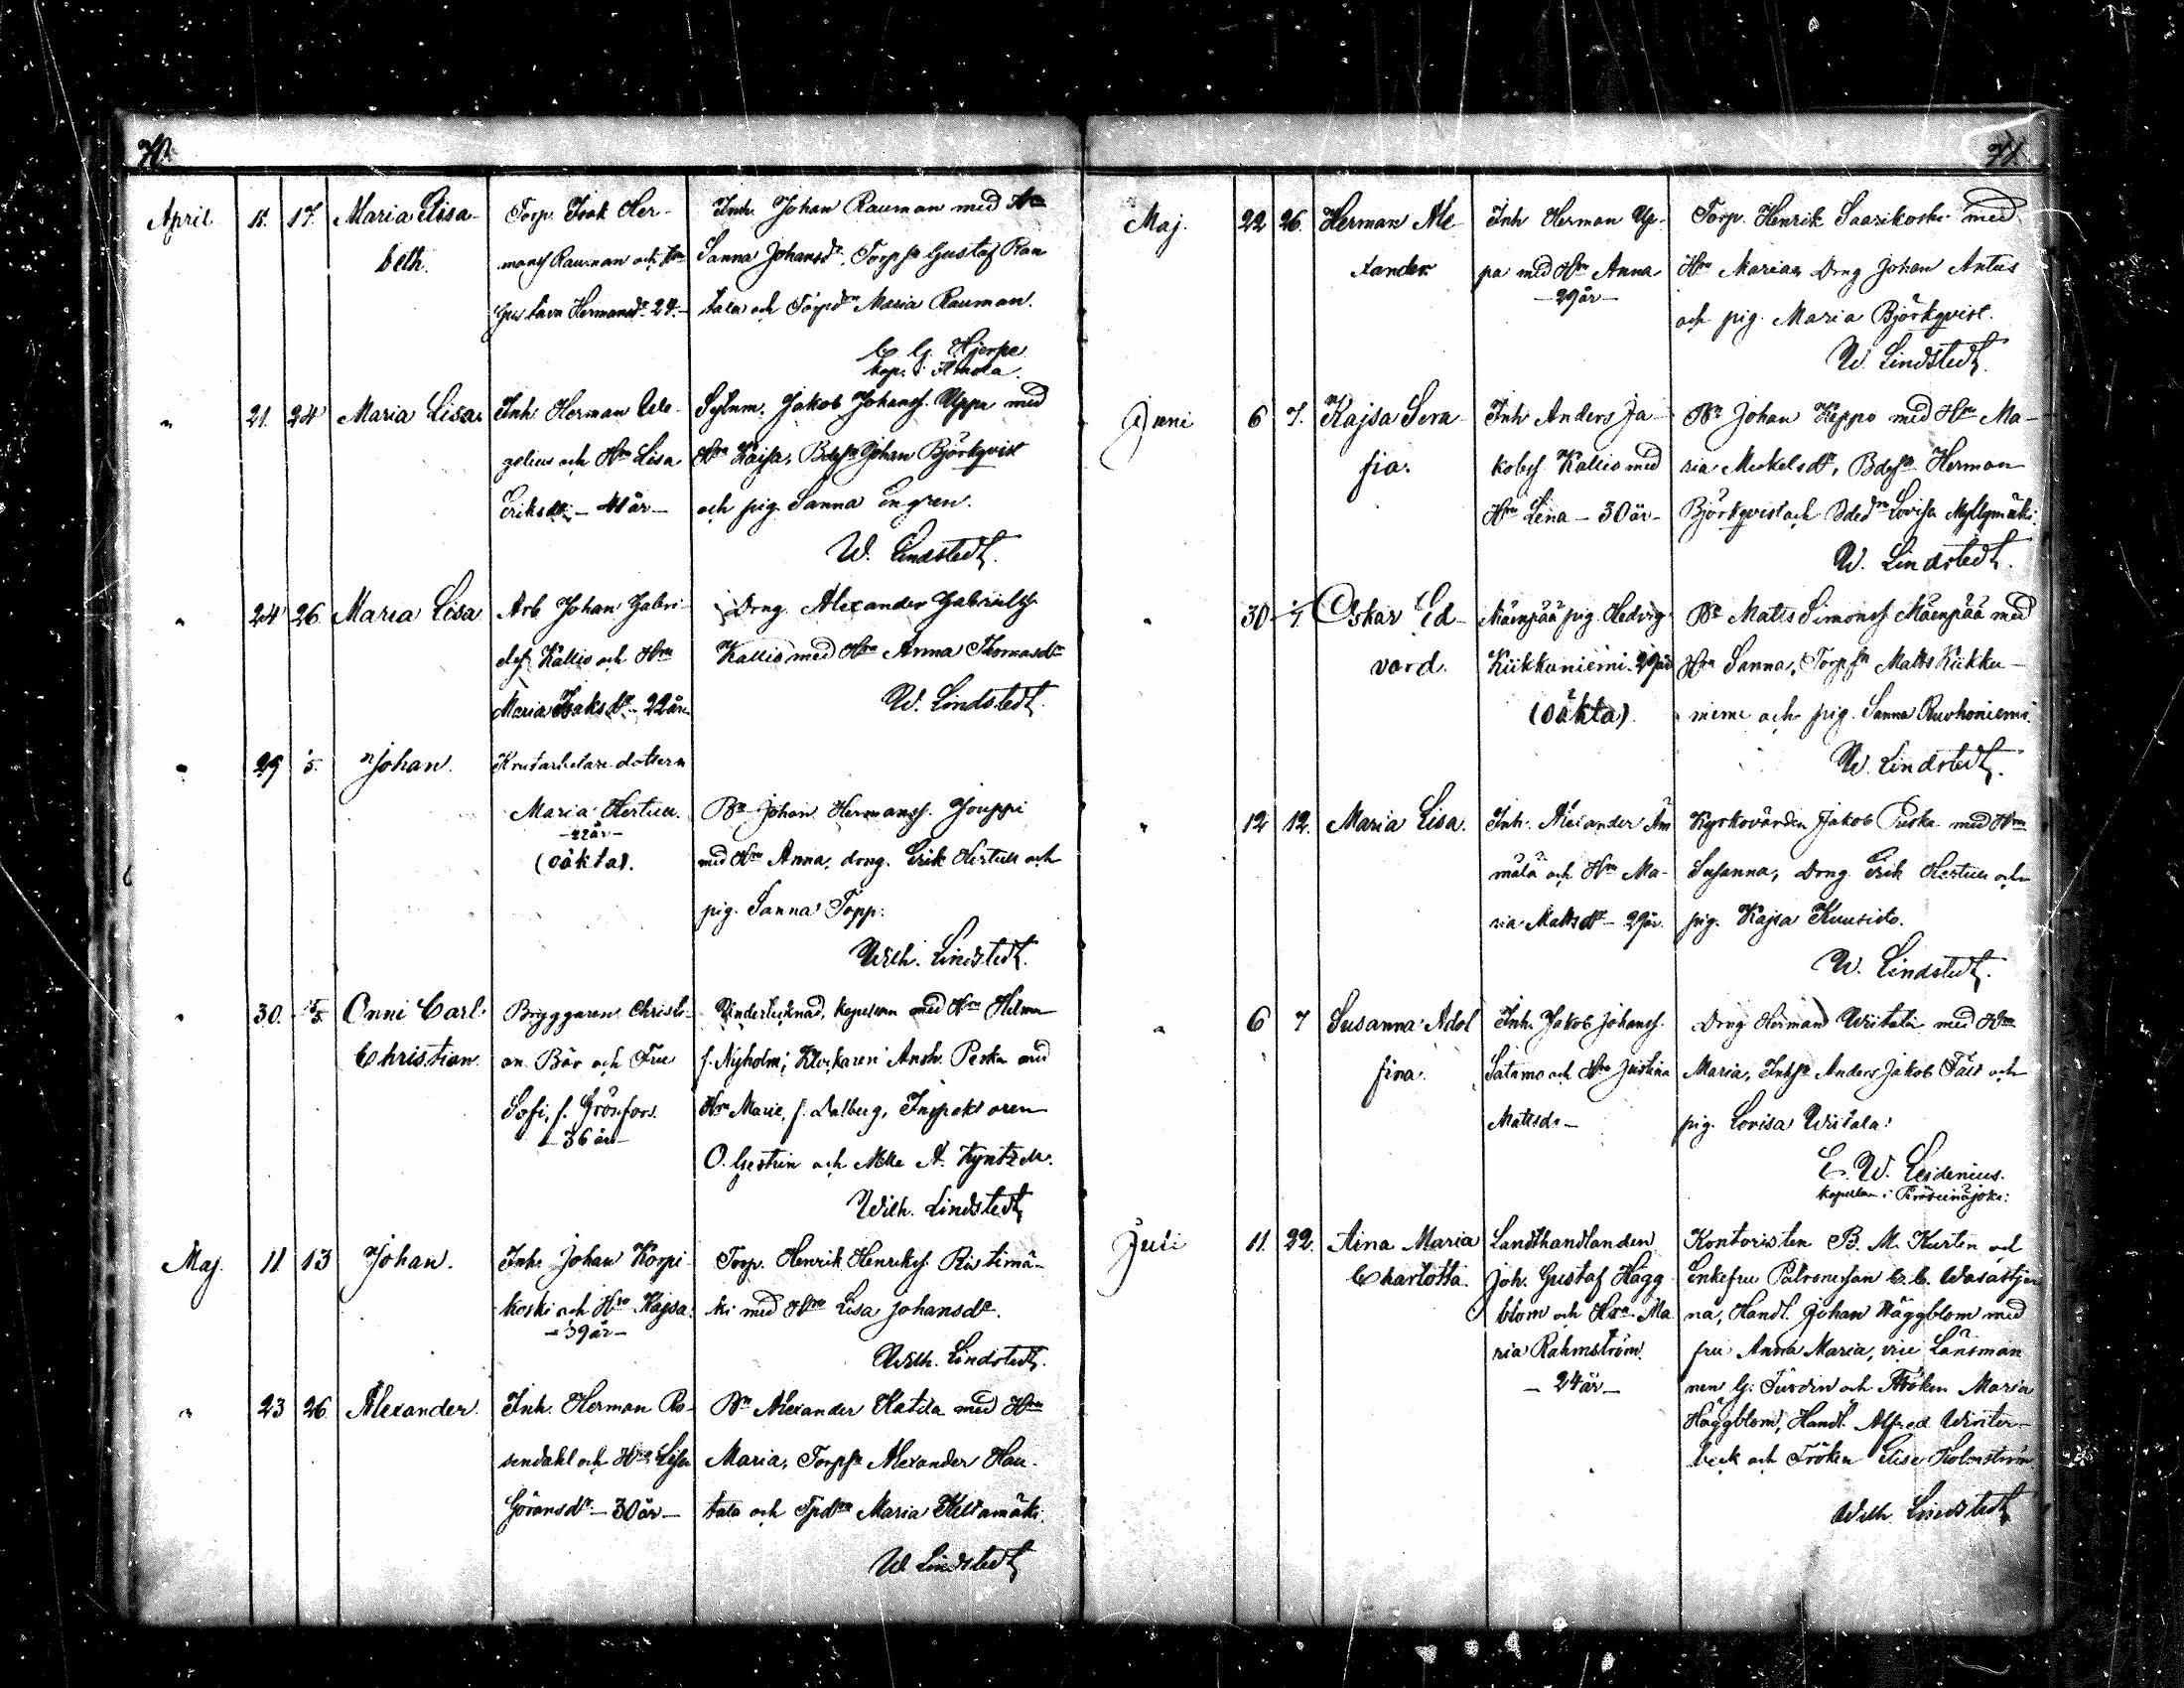 70.
April 15. 17. Maria Elisa-
beth.
Torp. Isak Her-
manss Rauman och Hru
Gustava Hermansdr 24.-
Inh. Johan Rauman med Hru
Sanna Johansdr, Torpsn Gustaf Ran
tala och Torpdn Maria Rauman.
C. G. Hjerpe
kap. i
" 21. 24 Maria Lisa.
Inh. Herman
gelius och Hru Lisa
Eriksdr - 41 år -
Sytnm. Jakob Johanss. Uppa med
Hru Kajsa, Bdesn Johan Björkqvist
och pig. Sanna Engren.
W. Lindstedt.
" 24 26 Maria Lisa
Arb Johan Gabri-
elss Kallio och Hru
Maria Isaksdr - 22 år.
Drng. Alexander Gabrielss
Kallio med Hru Anna Thomasdr
W. Lindstedt.
" 29 5. Johan.
dottern
Maria Hertuu.
- 22 år -
(oäkta).
Bn Johan Hermanss. Jouppi
med Hru Anna, drng. Erik Hertuu och
pig. Sanna Topp.
Wilh. Lindstedt.
" 30. 5. Onni Carl
Christian.
Bryggaren Christi-
an Bär och Fru
Sofi, f. Grönfors.
- 36 år -
Undertecknad, kapellan med Hru Hilma
f. Nyholm; Klockaren Ansh. Peska med
Hru Marie, f. Dalberg, Inspektoren
O. Gestrin och Mlle A. Kyntzell.
Wilh. Lindstedt
Maj. 11 13 Johan.
Inh. Johan Korpi-
koski och Hru Kajsa.
- 39 år -
Torp. Henrik Henrikss. Ristimä-
ki med Hru Lisa Johansdr.
Wilh. Lindstedt.
" 23 26 Alexander.
Inh. Herman Ro-
sendahl och Hru Lisa
Göransdr - 30 år -
Bn Alexander Hatila med Hru
Maria, Torpsn Alexander Hau-
tala och Tpdrn Maria Kiltamäki.
W Lindstedt
71.
Maj. 22 26. Herman Ale-
xander
Inh Herman Up-
pa med Hru Anna
- 29 år -
Torp. Henrik Saarikoski med
Hru Maria, Drng Johan Antus
och pig. Maria Björkqvist.
W. Lindstedt.
Juni 6 7. Kajsa Sera-
fia.
Inh Anders Ja-
kobss Kallio med
Hru Lena - 30 år -
Bn Johan Keppo med Hru Ma-
ria Mickelsdr, Bdesn Herman
Björkqvist och Bdedrn Lovisa Myllymäki.
W. Lindstedt.
" 30 Oskar Ed-
vard.
Mäenpää pig. Hedvig
Kiikkuniemi. 29 år
(oäkta).
Bn Matts Simonss Mäenpää med
Hru Sanna, Torpsn Matts Kiikku-
niemi och pig. Sanna Ruohoniemi.
W. Lindstedt.
" 12 12. Maria Lisa.
Inh. Alexander Äm
mälä och Hru Ma-
ria Mattsdr - 29 år.
Kyrkovärden Jakob Puska med Hru
Susanna, Drng Erik Hertuu och
pig. Kajsa Kuusisto.
W. Lindstedt.
" 6 7 Susanna Adol
fina.
Inh. Jakob Johanss.
Satamo och Hru Justina
Mattsdr -
Drng Herman Wiitala med Hru
Maria, Inhsn Anders Jakob Fält och
pig. Lovisa Wiitala.
E. W. Leidenius.
kapellan i Peräseinäjoki.
Juli 11. 22. Aina Maria
Charlotta.
Landthandlanden
Joh. Gustaf Hägg
blom och Hru Ma
ria Rahmström.
- 24 år -
Kontoristen B. M. Kurtén och
Enkefru Patronessan C. C. Wasastjer
na, Handl. Johan Häggblom med
fru Anna Maria, vice Länsman
nen G. Tördin och Fröken Maria
Häggblom, Handl. Alfred Winter-
beck och Fröken Elise Holmström
Wilh. Lindstedt